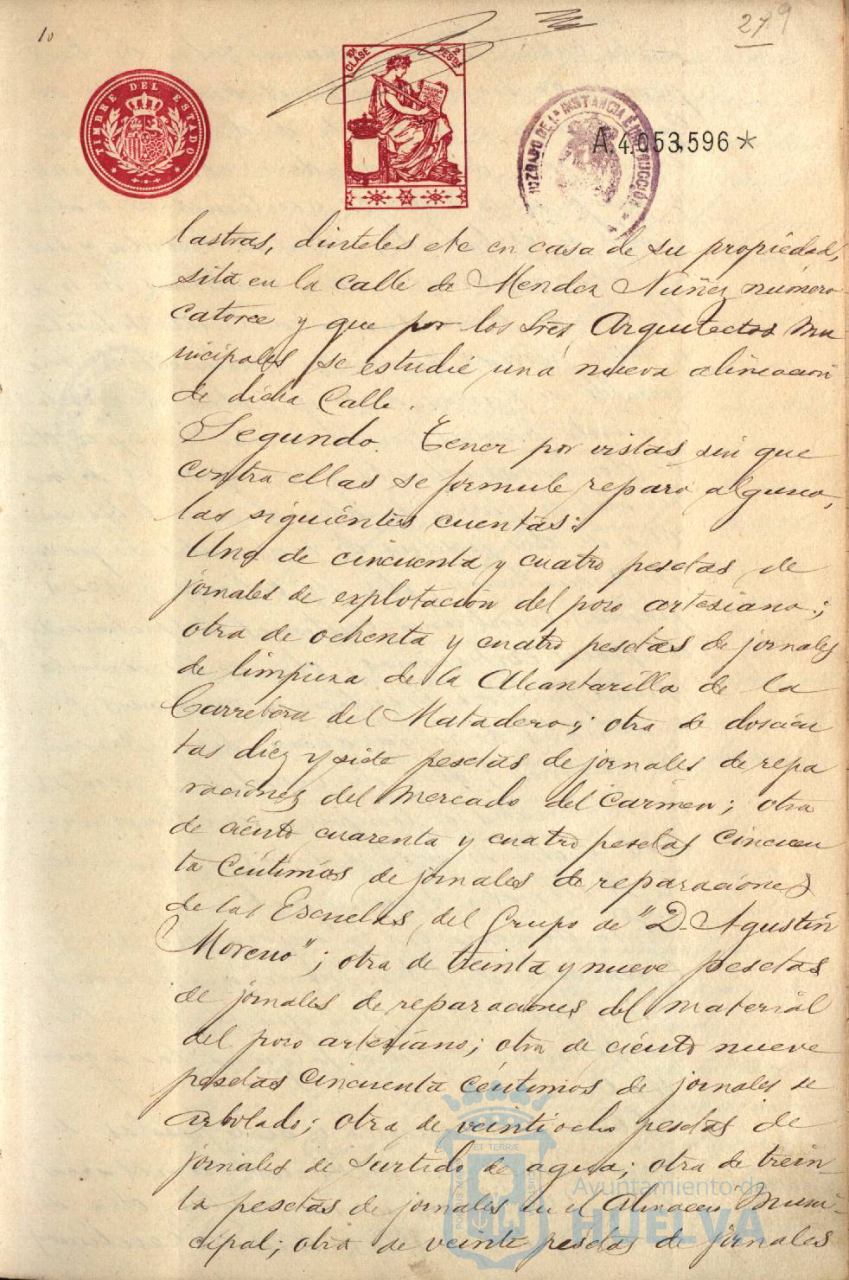 10
279
TIMBRE DEL ESTADO
10ª CLASE
2 PESETAS
JUZGADO DE 1ª INSTANCIA É INSTRUCCIÓN
A.4.053,596*
lastras, dinteles etc en casa de su propiedad,
sita en la calle de Mendez Nuñez número
catorce y que por los Sres Arquitectos Mu
nicipales se estudie una nueva alineación
de dicha Calle.
Segundo. Tener por vistas sin que
contra ellas se formule reparo alguno,
las siguientes cuentas:
Una de cincuenta y cuatro pesetas de
jornales de explotación del pozo artesiano;
otra de ochenta y cuatro pesetas de jornales
de limpieza de la Alcantarilla de la
Carretera del Matadero; otra de doscien
tas diez y siete pesetas de jornales de repa
raciones del Mercado del Carmen; otra
de ciento cuarenta y cuatro pesetas cincuen
ta céntimos de jornales de reparaciones
de las Escuelas del Grupo de "D. Agustín
Moreno"; otra de treinta y nueve pesetas
de jornales de reparaciones del material
del pozo artesiano; otra de ciento nueve
pesetas cincuenta céntimos de jornales de
arbolado; otra de veintiocho pesetas de
jornales de surtido de agua; otra de trein-
ta pesetas de jornales en el Almacen Muni-
cipal; otra de veinte pesetas de jornales
Ayuntamiento de
HUELVA